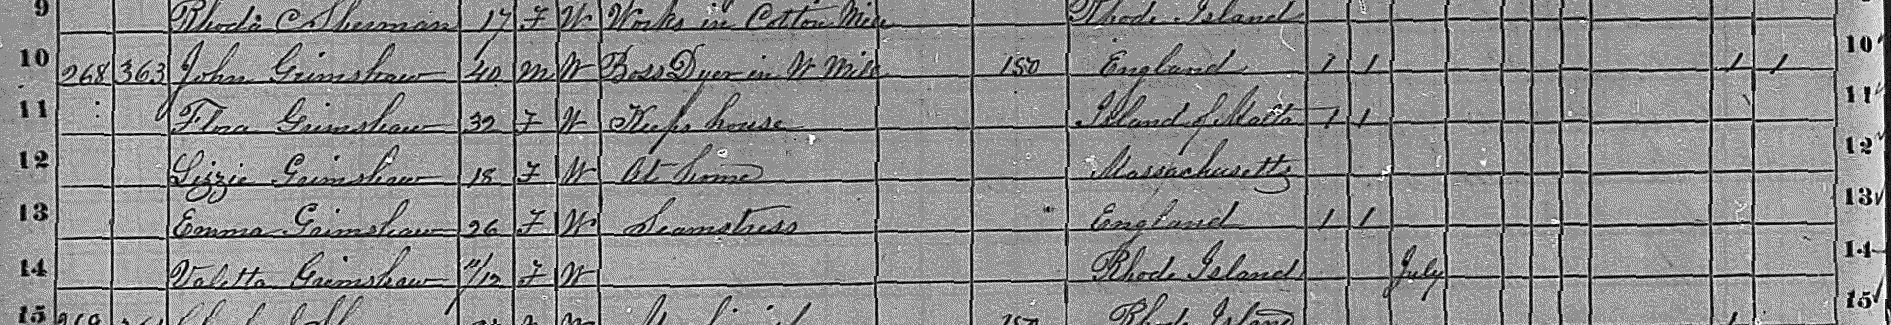 9 Rhoda C Sherman 17 F W Works in Cotton Mill Rhode Island
10 268 363 John Grimshaw 40 M W Boss Dyer in W Mill 150 England 1 1 1 1 10
11 Flora Grimshaw 39 F W Keeps house Island of Malta 1 1 11
12 Lizzie Grimshaw 18 F W At home Massachusetts 12
13 Emma Grimshaw 26 F W Seamstress England 1 1 13
14 Valetta Grimshaw 11/12 F W Rhode Island July 14
15 269 150 Rhode Island 1 15